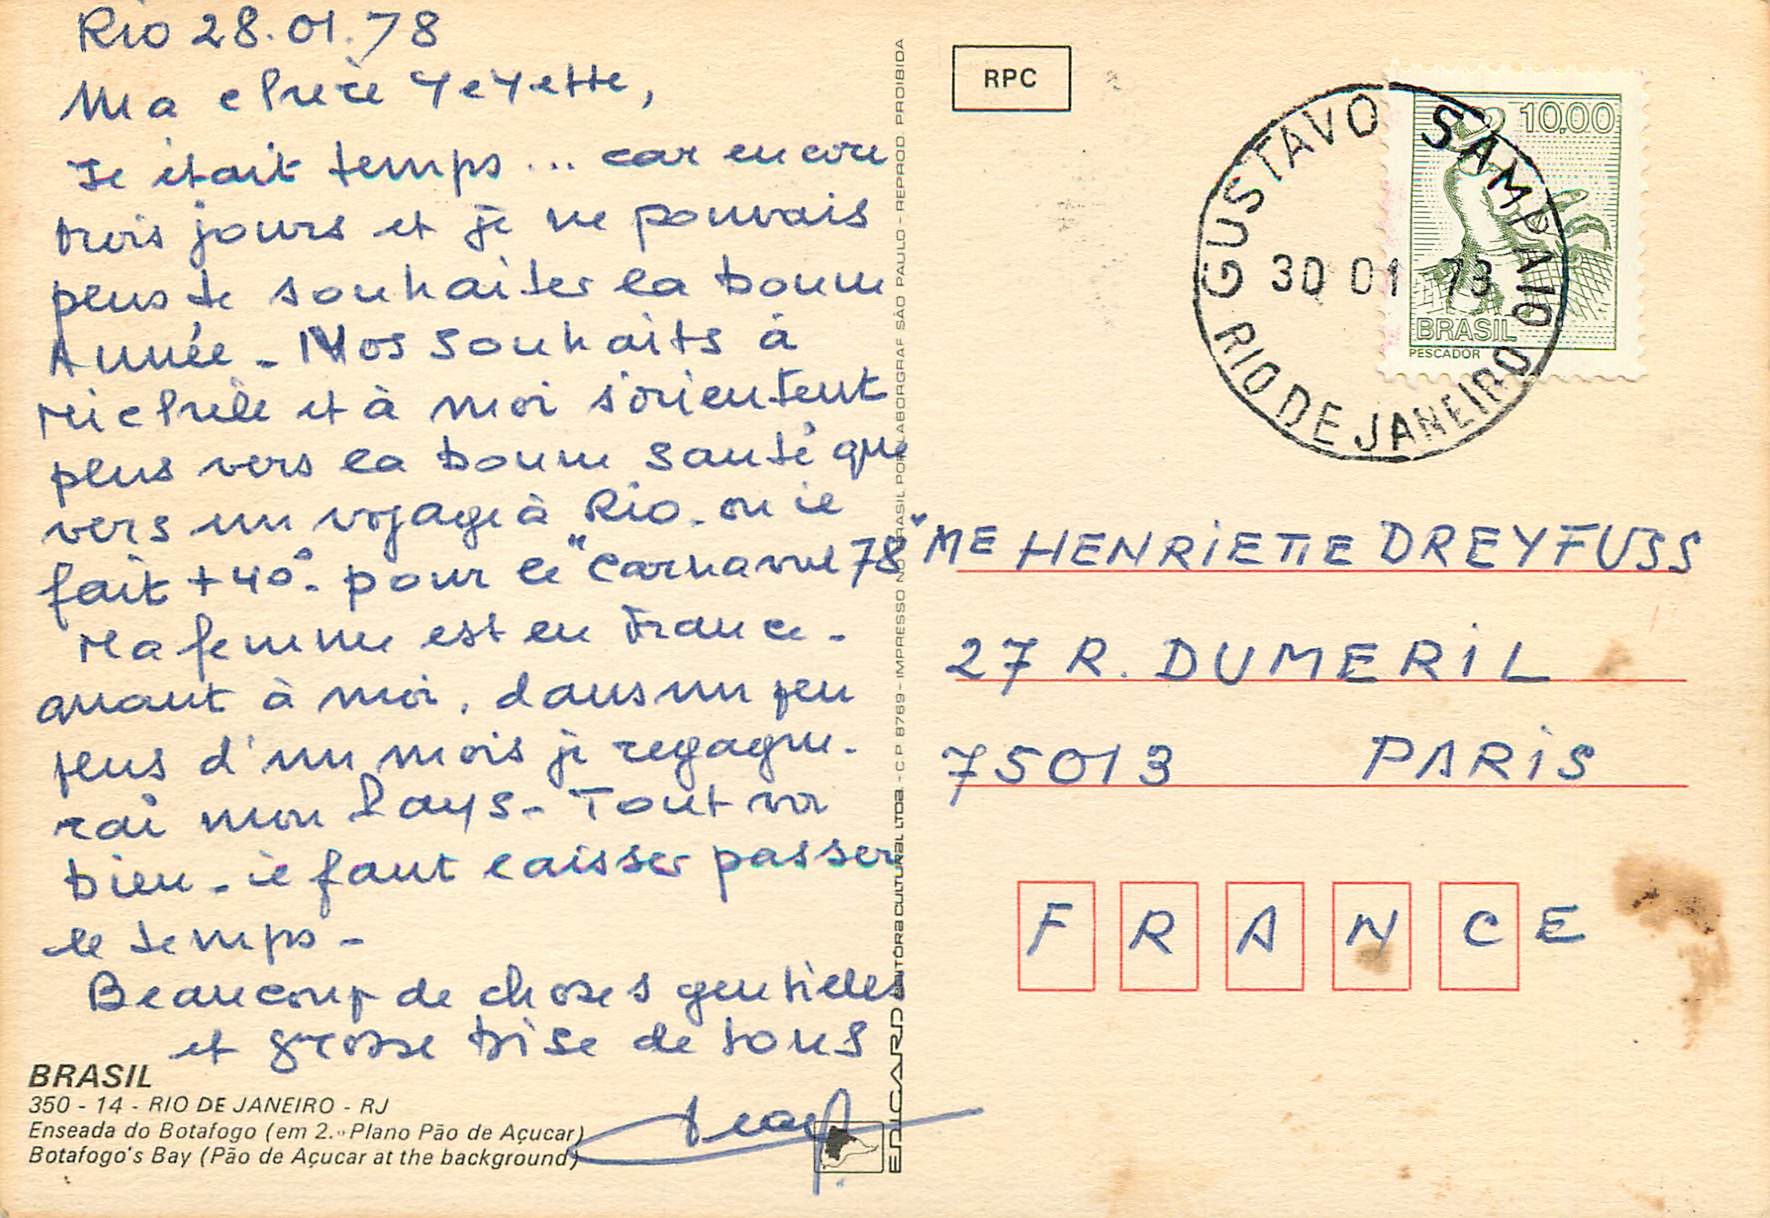 Rio 28.01.78
Ma chère Yeyette,
Il était temps... car encore
trois jours et je ne pouvais
plus te souhaiter la bonne
Année - Nos souhaits à
Michèle et à moi s'orientent
plus vers la bonne santé que
vers un voyage à Rio - où il
fait + 40° - pour le "Carnaval 78"
Ma femme est en France -
quant à moi, dans un peu
plus d'un mois je regagne-
rai mon Pays - Tout va
bien - il faut laisser passer
le temps -
Beaucoup de choses gentilles
et grosse bise de tous
BRASIL
350 - 14 - RIO DE JANEIRO - RJ
Enseada do Botafogo (em 2.º Plano Pão de Açucar)
Botafogo's Bay (Pão de Açucar at the background)
EDICARD EDITÔRA CULTURAL LTDA. - C P 8769 - IMPRESSO NO BRASIL POR LABORGRAF SÃO PAULO - REPROD. PROIBIDA
RPC
10,00
BRASIL
PESCADOR
GUSTAVO SAMPAIO
30 01 78
RIO DE JANEIRO
ME HENRIETTE DREYFUSS
27 R. DUMERIL
75013 PARIS
FRANCE